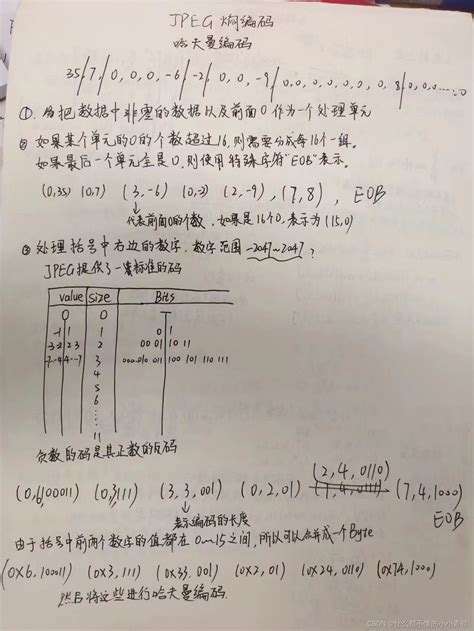 JPEG 熵编码
哈夫曼编码
35/7/0,0,0,-6/-2/0,0,-9/0,0,0,0,0,0,0,8/0,0…0
①. 先把数据中非零的数据以及前面0作为一个处理单元
② 如果某个单元的0的个数超过16,则需要分成每16个一组.
如果最后一个单元全是0,则使用特殊字符"EOB"表示.
(0,35) (0,7) (3,-6) (0,-2) (2,-9), (7,8), EOB
代表前面0的个数,如果是16个0,表示为(15,0)
③ 处理括号中右边的数字,数字范围 -2047~2047 ?
JPEG提供了一套标准的码
value size Bits
0 0
-1 1 1 0 1
-3-2 2 3 2 00 01 10 11
-7…-4 4…7 3 000 010 011 100 101 110 111
4
5
6
11
负数的码是其正数的反码
(0,6,100011) (0,3,111) (3,3,001) (0,2,01) (2,4,0110) (7,4,1000)
EOB
表示编码的长度
由于括号中前两个数字的值都在0~15之间,所以可以合并成一个Byte
(0x6,10011) (0x3,111) (0x33,001) (0x2,01) (0x24,0110) (0x74,1000)
然后将这些进行哈夫曼编码.
CSDN @什么都不懂的小小青蛙